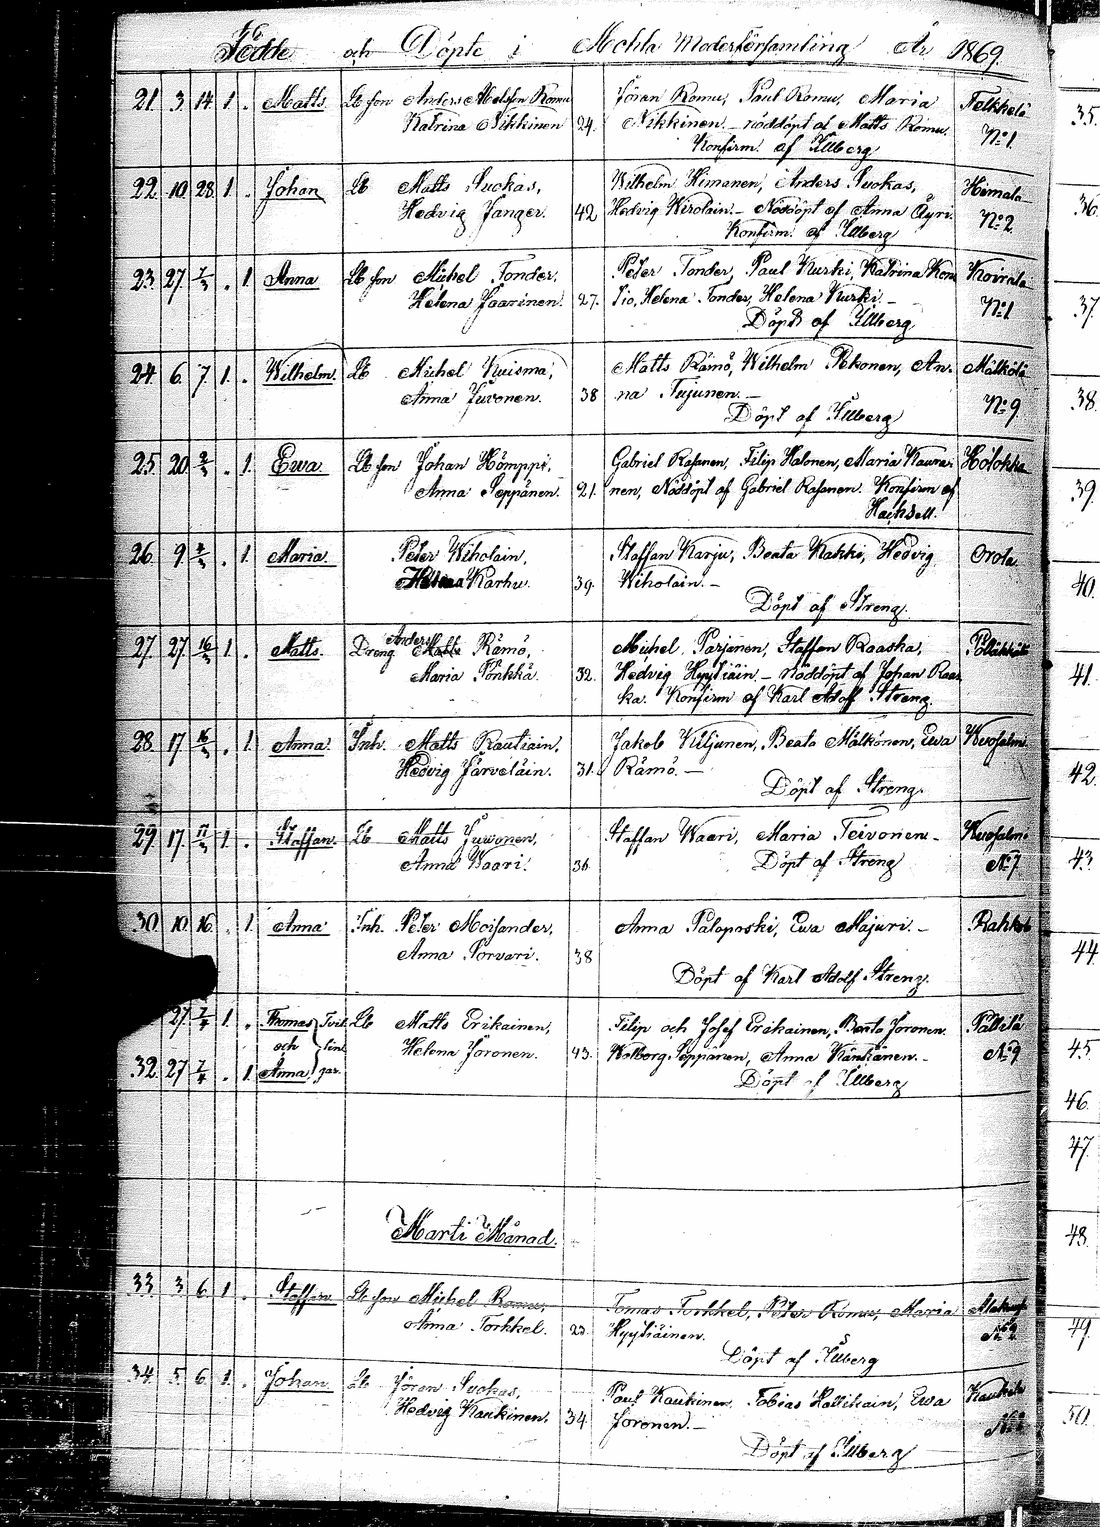 Födde och Döpte i Mohla Moderförsamling År 1869.
21. 3. 14. 1. . Matts. Lb son Anders Matsson Romu Jöran Romu, Paul Romu, Maria
Katrina Nikkinen 24. Nikkinen. – nöddöpt af Matts Romu. N:o 1.
Konfirm. af Illberg
22. 10. 28. 1. . Johan Lb Matts Suokas, Wilhelm Himanen, Anders Suokas, Himala
Hedvig Janger. 42 Hedvig Wirolain. – Nöddöpt af Anna Äyri. N:o 2.
Konfirm. af Illberg
23. 27. 7/3 . 1. Anna Lb son Michel Tonder, Peter Tonder, Paul Kurki, Katrina
Helena Jäärinen. 27. Helena Tonder, Helena Kurki – N:o 1
Döpt af Illberg
24. 6. 7. 1. . Wilhelm. Lb Michel Kuisma, Matts Rämö, Wilhelm Pekonen, An- Mälkölä
Anna Juvonen. 38 na Tujunen. – N:o 9.
Döpt af Illberg
25. 20. 2/3 . 1. Ewa Lb son Johan Hömppi, Gabriel Rasanen, Filip Halonen, Maria
Anna Seppänen. 21. nen, Nöddöpt af Gabriel Rasanen. Konfirm af
26. 9. . 1. Maria. Peter Wiholain, Staffan Karju, Beata Kakki, Hedvig Orola.
Karhu. 39. Wiholain. –
Döpt af Streng.
27. 27. 16/3 1. . Matts. Dreng Anders Rämö, Michel Parjanen, Staffan Raaska,
Maria Pönkkä. 32. Hedvig Hyytiäin. – nöddöpt af Johan Raas-
ka. Konfirm af Karl Adolf Streng.
28. 17. 16/3 . 1. Anna. Inh. Matts Rautiain, Jakob Kiljunen, Beata Mälkönen, Ewa
Hedvig Järveläin. 31. Rämö. –
Döpt af Streng.
29. 17. 1. . Staffan. Lb Matts Juvonen, Staffan Waari, Maria Teivonen. –
Anna Waari. 36. Döpt af Streng N:o 7
30. 10. 16. . 1. Anna Inh. Peter Moisander, Anna Paloposki, Ewa Majuri. –
Anna Porvari. 38
Döpt af Karl Adolf Streng.
27. 7/4 1. . Thomas Tvil- Lb Matts Erikainen, Filip och Josef Erikainen, Beata Joronen. Pällilä
och lin- Helena Joronen. 43. Wolborg Seppänen, Anna Känkänen. – N:o 9
32. 27. 7/4 . 1. Anna gar. Döpt af Illberg
Marti Månad.
33. 3. 6. 1. . Staffan Lb son Michel Romu, Tomas Torkkel, Peter Romu, Maria
Anna Torkkel. 22. Hyytiäinen. N:o 2.
Döpt af Illberg
34. 5. 6. 1. . Johan Lb Jöran Suokas, Paul Kaukinen, Tobias Hattikain, Ewa
Hedvig Kaukinen. 34 Joronen. –
Döpt af Illberg
35.
36.
37.
38.
39.
40.
41.
42.
43.
44.
45.
46.
47.
48.
49.
50.